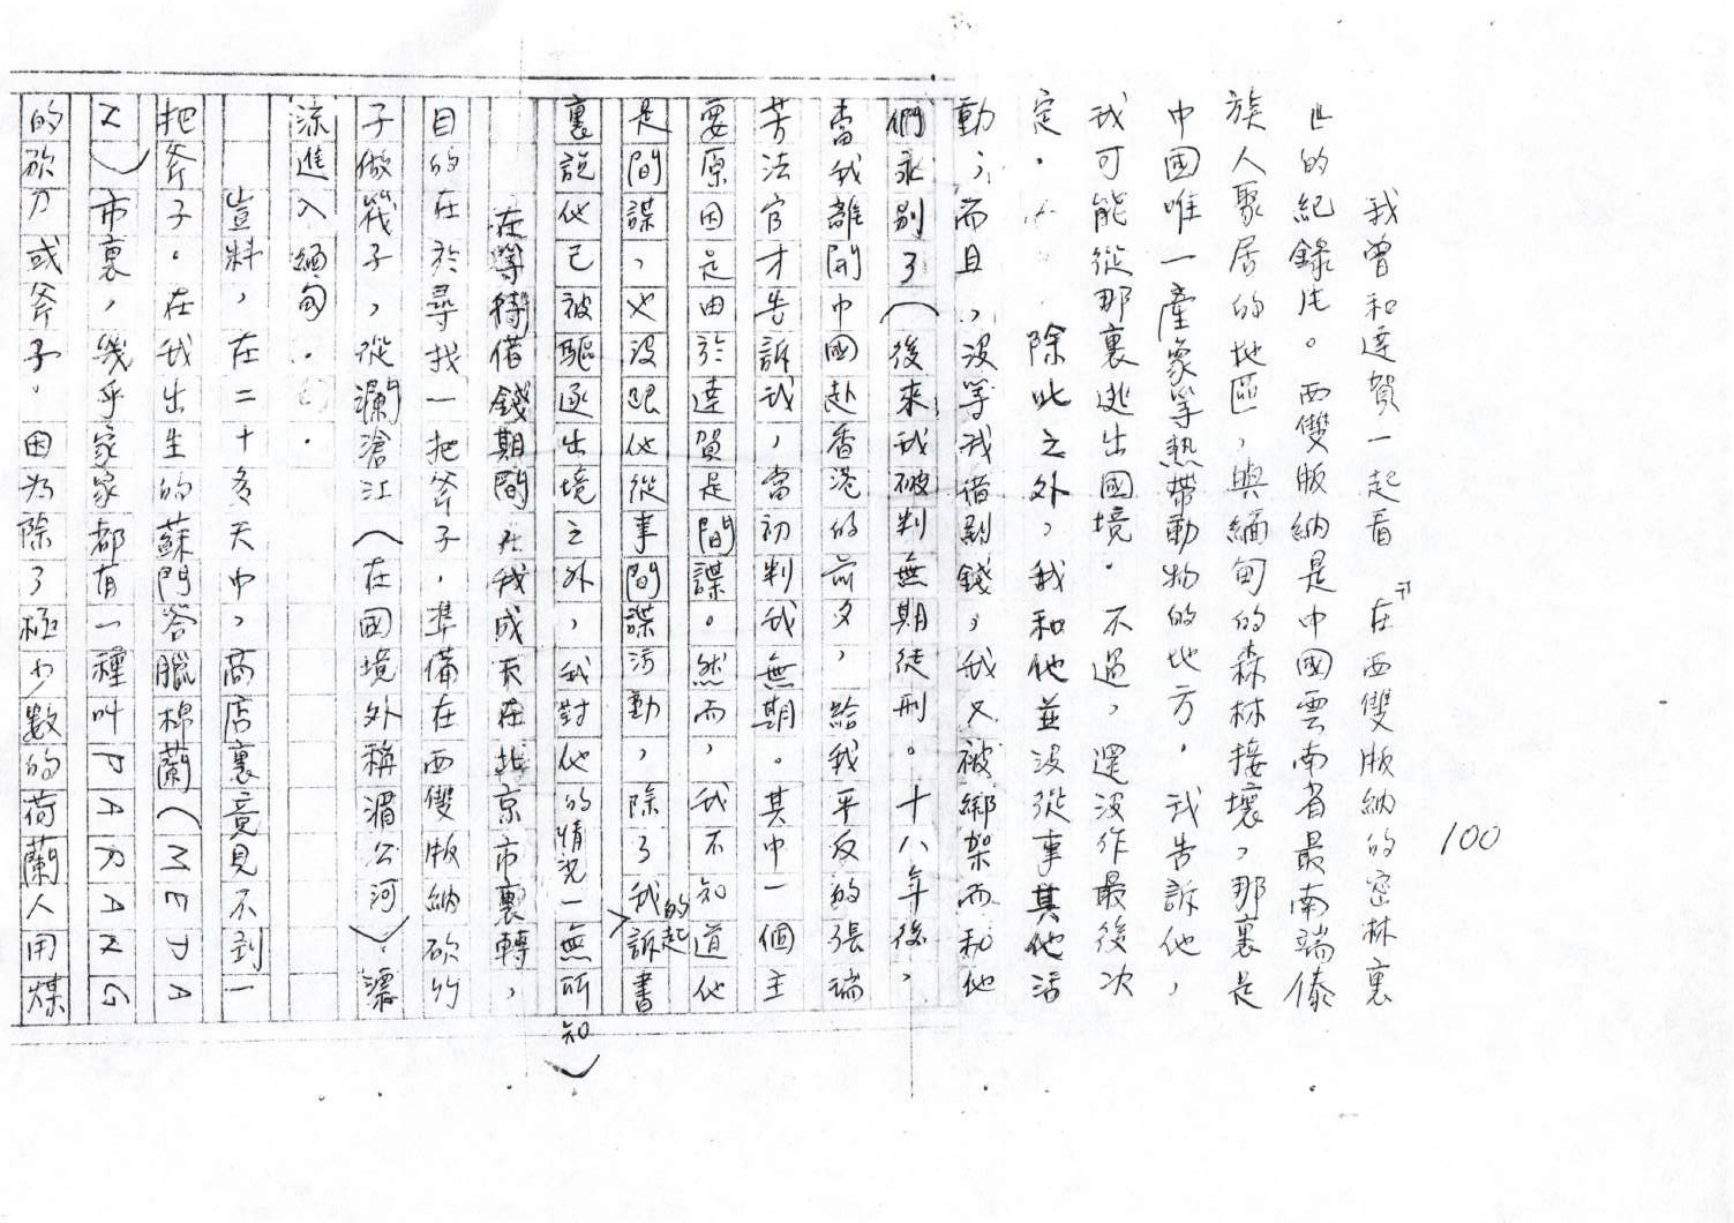 100
我曾和達賀一起看『在西雙版納的密林裏
』的紀錄片。西雙版納是中國雲南省最南端傣
族人聚居的地區，與緬甸的森林接壤，那裏是
中國唯一產象等熱帶動物的地方．我告訴他，
我可能從那裏逃出國境．不過，還沒作最後決
定．除此之外，我和他並沒從事其他活
動，而且，沒等我借到錢，我又被綁架而和他
們永別了（後來，我被判無期徒刑。十八年後，
當我離開中國赴香港的前夕，給我平反的張瑞
芳法官才告訴我，當初判我無期。其中一個主
要原因是由於達賀是間諜。然而，我不知道他
是間諜，也沒跟他從事間諜活動，除了我的起訴書
裏說他已被驅逐出境之外，我對他的情況一無所知）
在等待借錢期間，我成天在北京市裏轉，
目的在於尋找一把斧子．準備在西雙版納砍竹
子做筏子，從瀾滄江（在國境外稱湄公河），漂
流進入緬甸．
豈料，在二十多天中，商店裏竟見不到一
把斧子。在我出生的蘇門答臘棉蘭（MEDA
N）市裏，幾乎家家都有一種叫PARANG
的砍刀或斧子．因為除了極少數的荷蘭人用煤